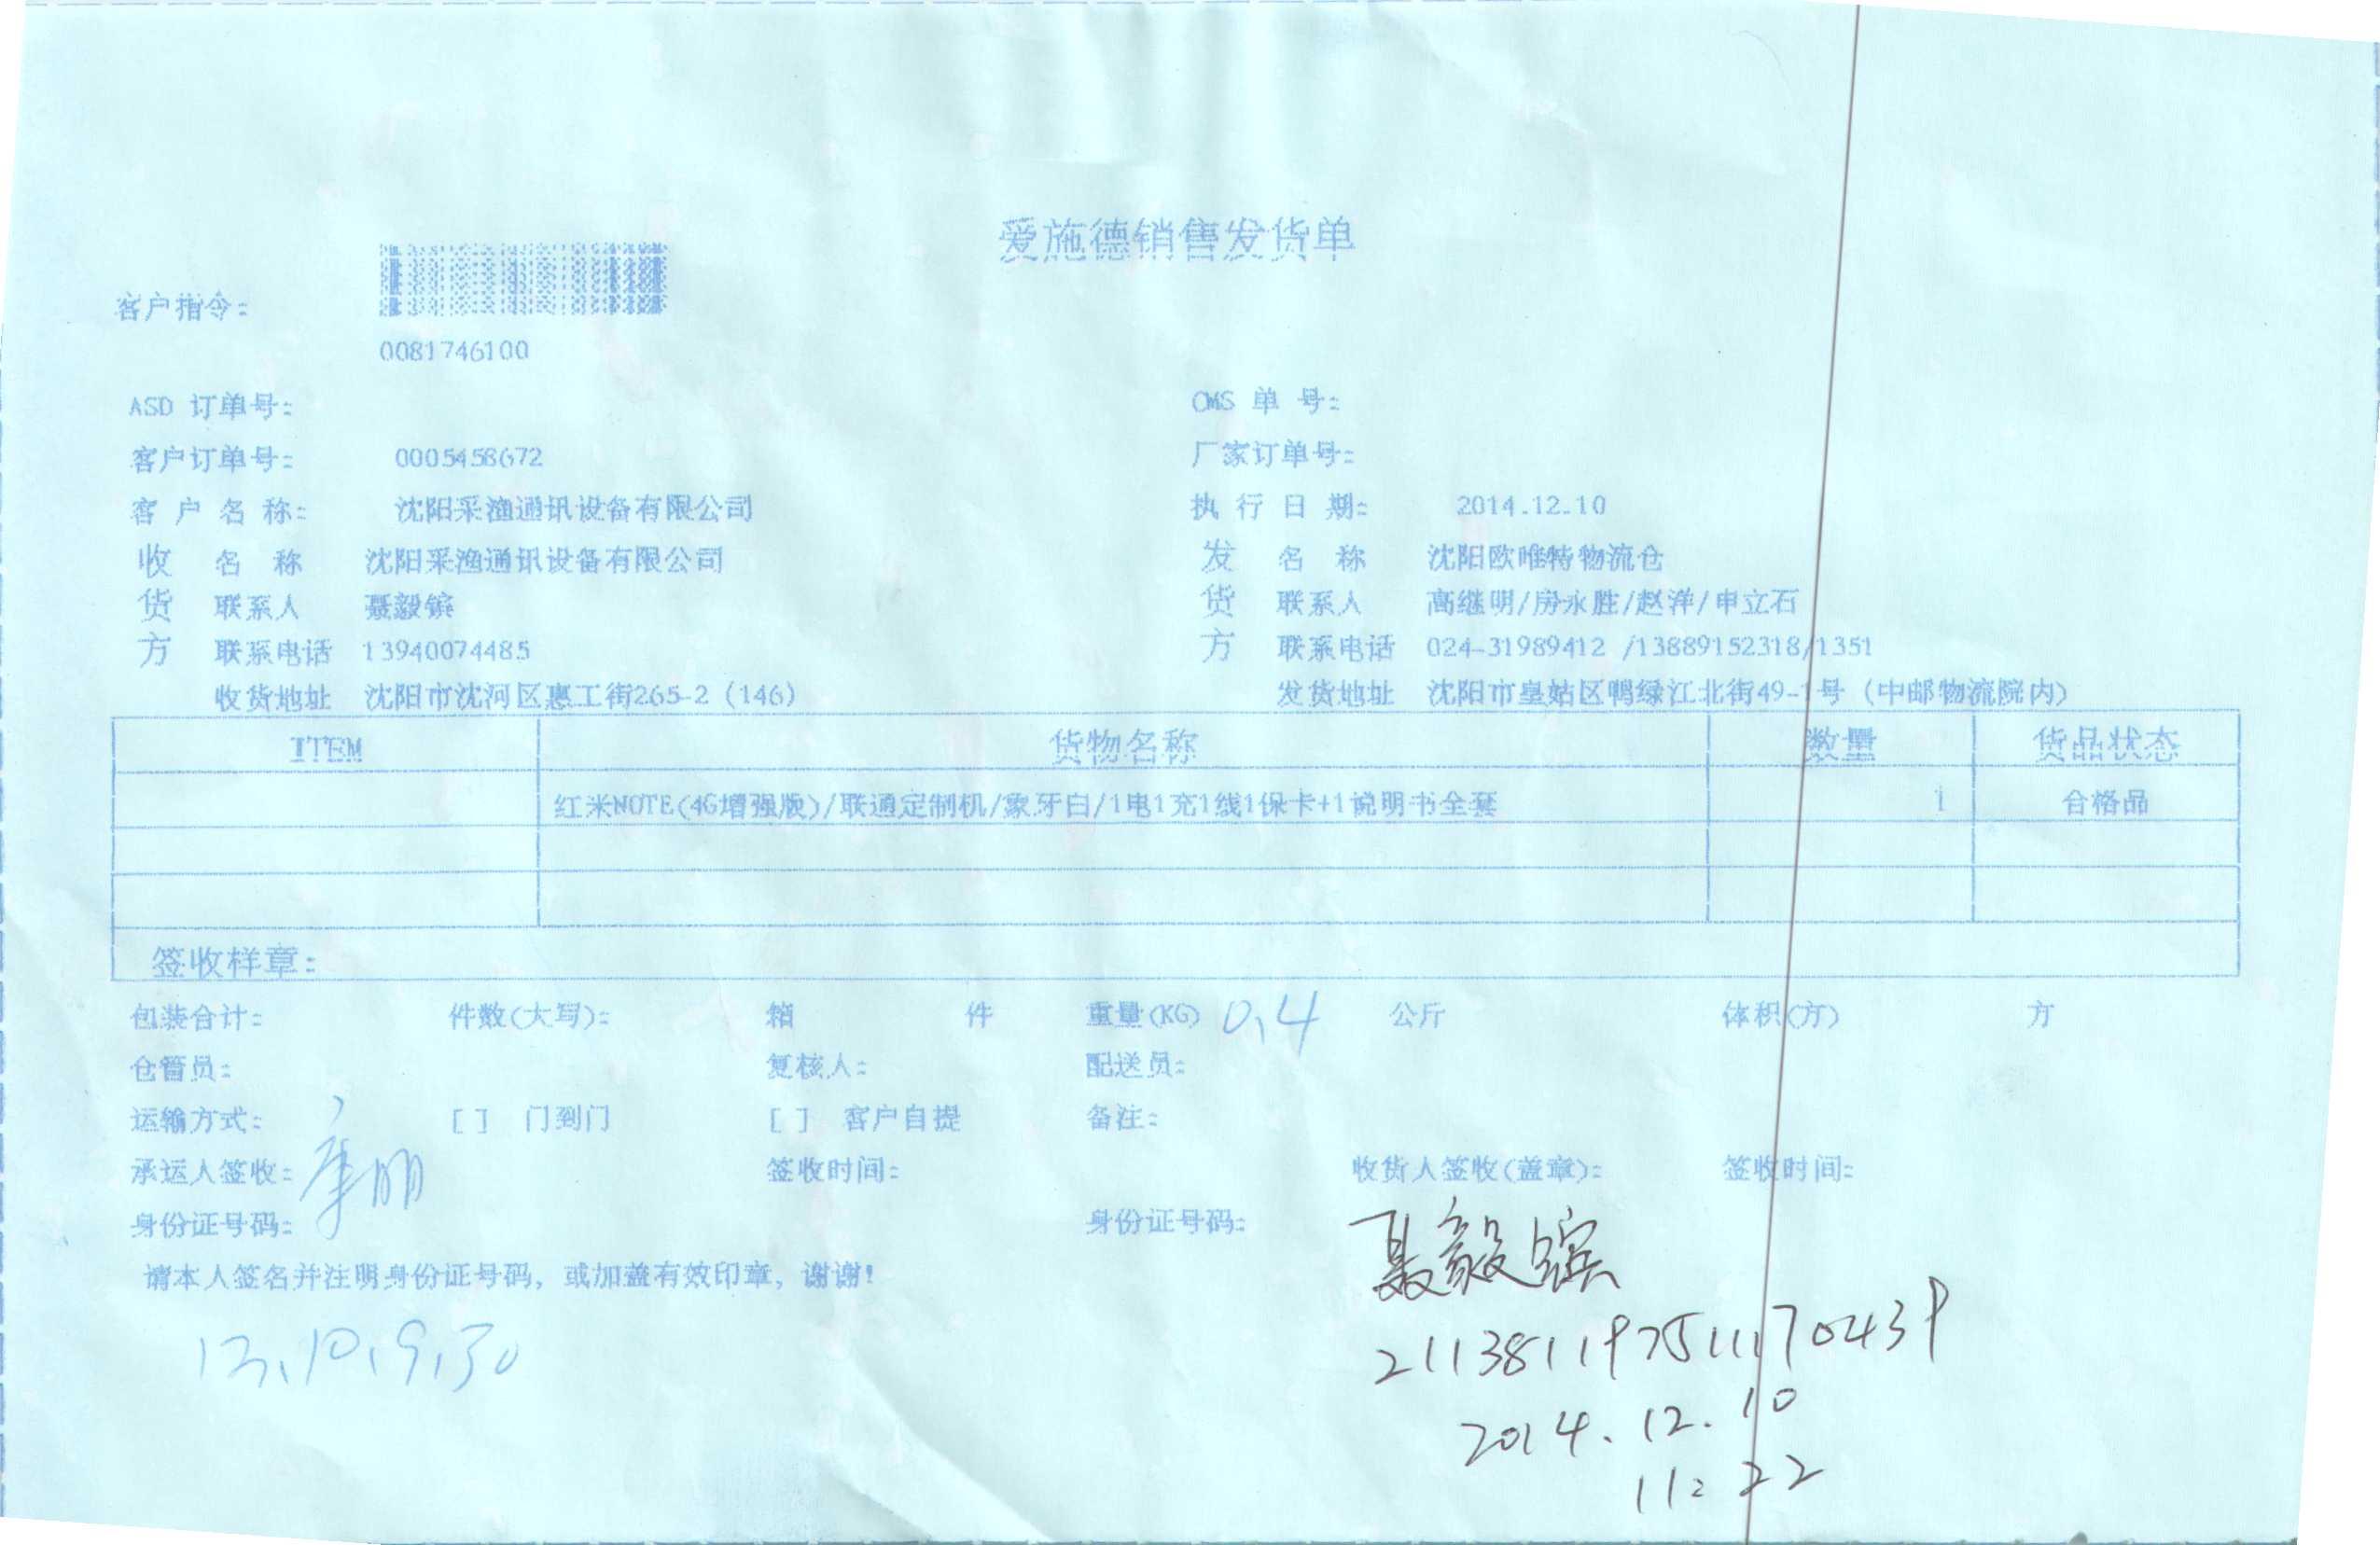 爱施德销售发货单
客户指令:
0081746100
ASD 订单号: OMS 单 号:
客户订单号: 0005458672 厂家订单号:
客 户 名 称: 沈阳采渔通讯设备有限公司 执 行 日 期: 2014.12.10
收 名 称 沈阳采渔通讯设备有限公司 发 名 称 沈阳欧唯特物流仓
货 联系人 聂毅镔 货 联系人 高继明/房永胜/赵洋/申立石
方 联系电话 13940074485 方 联系电话 024-31989412 /13889152318/1351
收货地址 沈阳市沈河区惠工街265-2 (146) 发货地址 沈阳市皇姑区鸭绿江北街49-1号 (中邮物流院内)
ITEM 货物名称 数量 货品状态
红米NOTE(4G增强版)/联通定制机/象牙白/1电1充1线1保卡+1说明书全套 1 合格品
签收样章:
包装合计: 件数(大写): 箱 件 重量(KG) 0.4 公斤 体积(方) 方
仓管员: 复核人: 配送员:
运输方式: [ ] 门到门 [ ] 客户自提 备注:
承运人签收: 签收时间: 收货人签收(盖章): 签收时间:
身份证号码: 身份证号码: 聂毅镔
请本人签名并注明身份证号码, 或加盖有效印章, 谢谢!
211381197511170439
2014.12.10
11:22